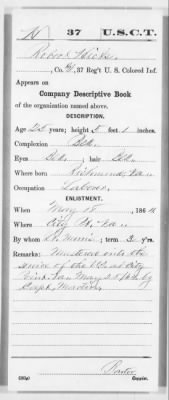 H 37 U.S.C.T.
Hicks
Co. 37 Reg't U. S. Colored Inf.
Appears on
Company Descriptive Book
of the organization named above.
DESCRIPTION.
Age 25 years; height 5 feet inches.
Complexion Blk.
Eyes Blk., hair Blk.
Where born Richmond, Va
Occupation Laborer
ENLISTMENT.
When May 18, 1864
Where City Pt. Va
By whom ; term 3 y'rs.
Remarks: Mustered into the
service of the U.S. at City
Point Va May 28 1864 by
Capt.
Copyist.